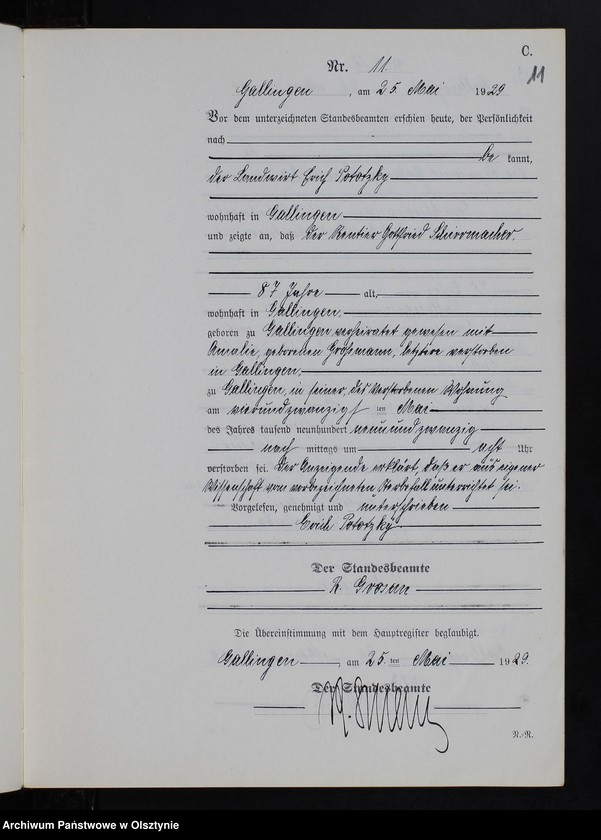 C.
Nr. 11.
11
Gallingen, am 25 Mai 1929
Vor dem unterzeichneten Standesbeamten erschien heute, der Persönlichkeit
nach
be kannt,
der Landwirt Erich Pototzky
wohnhaft in Gallingen
und zeigte an, daß der Rentier Gottfried Schirrmacher,
87 Jahre alt,
wohnhaft in Gallingen,
geboren zu Gallingen verheiratet gewesen mit
Amalie, geborenen Großmann, letztere verstorben
in Gallingen,
zu Gallingen, in seiner, des Verstorbenen Wohnung
am vierundzwanzigsten Mai
des Jahres tausend neunhundert neunundzwanzig
nach mittags um acht Uhr
verstorben sei. Der Anzeigende erklärt, daß er aus eigener
Wissenschaft vom vorbezeichneten Sterbefall unterrichtet sei.
Vorgelesen, genehmigt und unterschrieben
Erich Pototzky
Der Standesbeamte
Die Übereinstimmung mit dem Hauptregister beglaubigt.
Gallingen, am 25. ten Mai 1929.
Der Standesbeamte
N.-R.
Archiwum Państwowe w Olsztynie